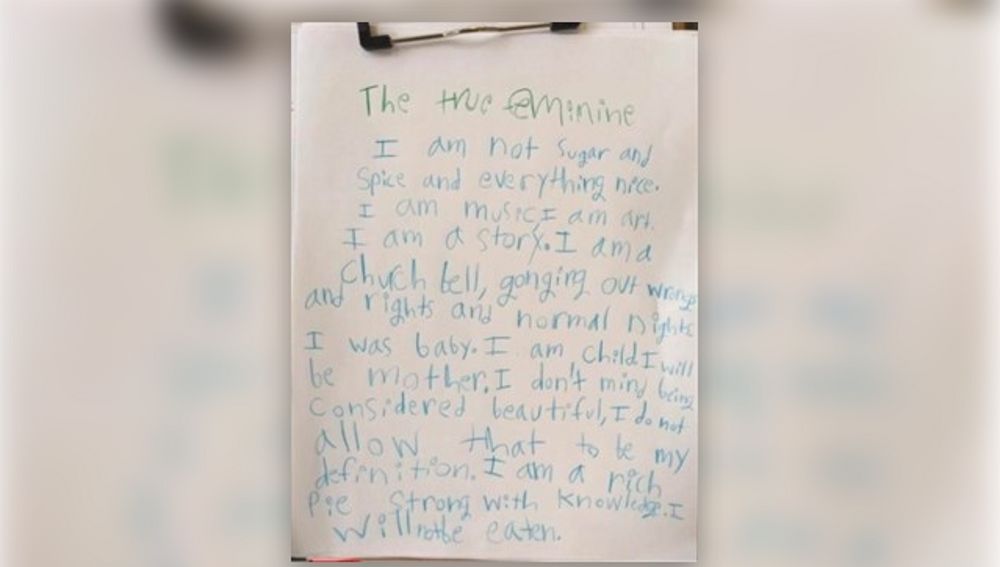 The true feminine
I am not sugar and
Spice and everything nice.
I am music, I am art.
I am a story. I am a
Church bell, gonging out wrongs
and rights and normal nights
I was baby. I am child I will
be mother. I don't mind being
Considered beautiful, I do not
allow that to be my
definition. I am a rich
Pie strong with knowledge. I
will not be eaten.